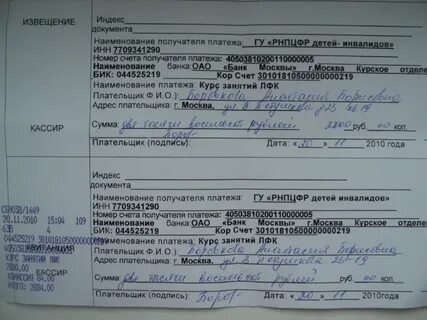 ИЗВЕЩЕНИЕ
Индекс
документа
Наименование получателя платежа: ГУ «РНПЦФР детей- инвалидов»
ИНН 7709341290
Номер счета получателя платежа: 40503810200110000005
Наименование банка ОАО «Банк Москвы» г.Москва Курское отделе
БИК: 044525219 Кор Счет 30101810500000000219
Наименование платежа: Курс занятий ЛФК
Плательщик Ф.И.О.: Боровкова Анастасия Борисовна
Адрес плательщика: г. Москва, ул.
Сумма: две тысячи восемьсот рублей 2800 руб. 00 коп.
КАССИР
Плательщик (подпись): Дата: «20» 11 2010 года
Индекс
документа
Наименование получателя платежа: ГУ «РНПЦФР детей инвалидов»
ИНН 7709341290
Номер счета получателя платежа: 40503810200110000005
Наименование банка ОАО «Банк Москвы» г.Москва Курское отделе
БИК: 044525219 Кор Счет 30101810500000000219
Наименование платежа: Курс занятий ЛФК
Плательщик Ф.И.О.: Боровкова Анастасия Борисовна
Адрес плательщика: г. Москва, ул.
Сумма: две тысячи восемьсот рублей руб. 00 коп.
Плательщик (подпись): Дата: «20» 11 2010года
20.11.2010 15:04 109
635 4
044525219 30101810500000000219
КВИТАНЦИЯ
КУРС ЗАНЯТИЙ
2800.00
КАССИР
КОМИССИЯ 84.00
ИТОГО: 2884.00